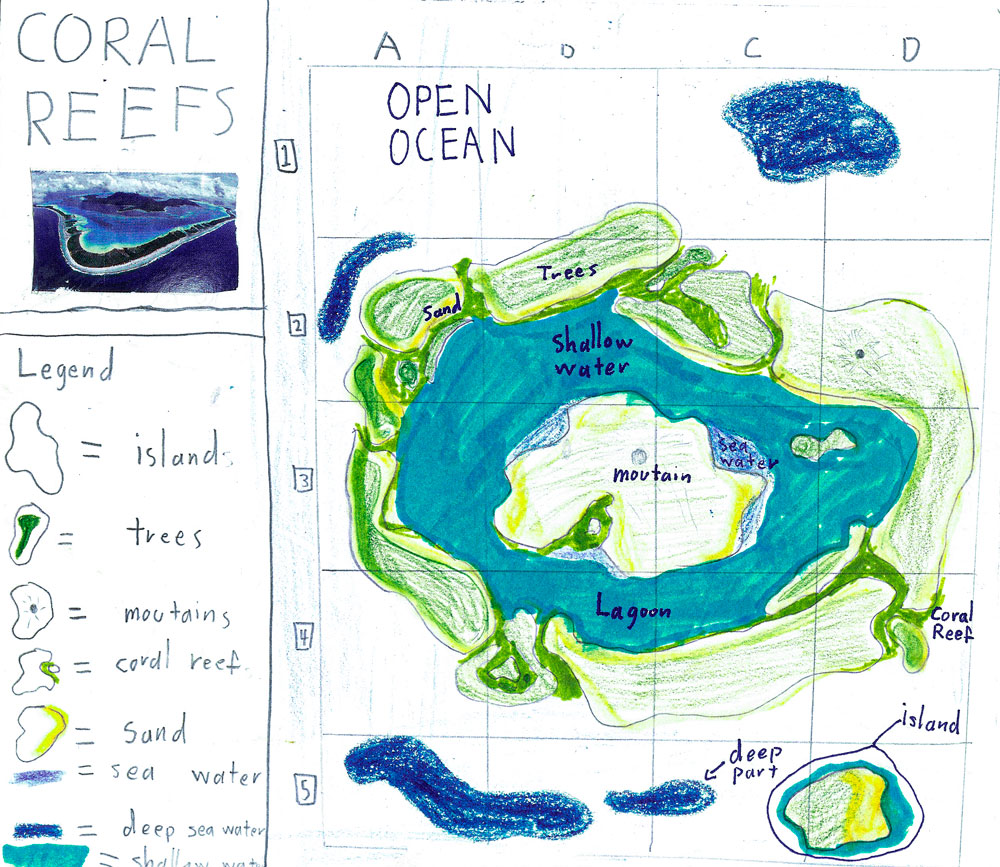 CORAL
REEFS
Legend
= island
= trees
= moutains
= coral reef
= Sand
= sea water
= deep sea water
= shallow wat
A D C D
1
OPEN
OCEAN
2
Trees
Sand
Shallow
water
3
sea
water
moutain
4
Lagoon
Coral
Reef
5
island
deep
part